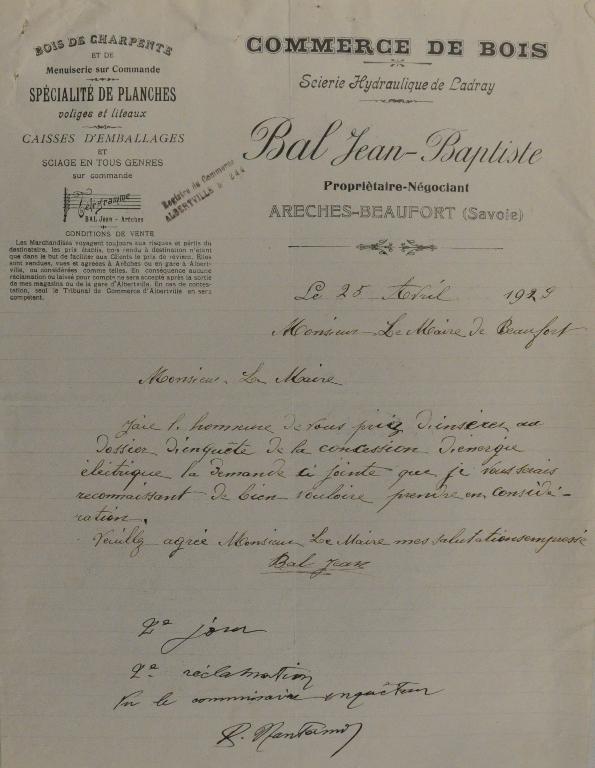 BOIS DE CHARPENTE
ET DE
Menuiserie sur Commande
SPÉCIALITÉ DE PLANCHES
voliges et liteaux
CAISSES D'EMBALLAGES
ET
SCIAGE EN TOUS GENRES
sur commande
Télégramme
BAL Jean - Arêches
CONDITIONS DE VENTE
Les Marchandises voyagent toujours aux risques et périls du
destinataire, les prix établis, bois rendu à destination n'étant
que dans le but de faciliter aux Clients le prix de revient. Elles
sont vendues, vues et agréées à Arêches ou en gare à Albert-
ville, ou considérées comme telles. En conséquence aucune
réclamation ou laissé pour compte ne sera accepté après la sortie
de mes magasins ou de la gare d'Albertville. En cas de contes-
tation, seul le Tribunal de Commerce d'Albertville en sera
compétent.
COMMERCE DE BOIS
Scierie Hydraulique de Ladray
Bal Jean-Baptiste
Propriètaire-Négociant
ARECHES-BEAUFORT (Savoie)
Registre du Commerce
ALBERTVILLE 244
Le 25 Avril 1929
Monsieur Le Maire de Beaufort
Monsieur Le Maire
J'aie l'honneure de vous priez d'insérer au
dossier d'enquête de la concession d'énergie
électrique la demande ci jointe que je vous serais
reconnaissant de bien vouloire prendre en considé-
ration.
Veuillez agrée Monsieur Le Maire mes salutations empressé
Bal Jean
2e jour
2e réclamation
Vu le commissaire enquêteur